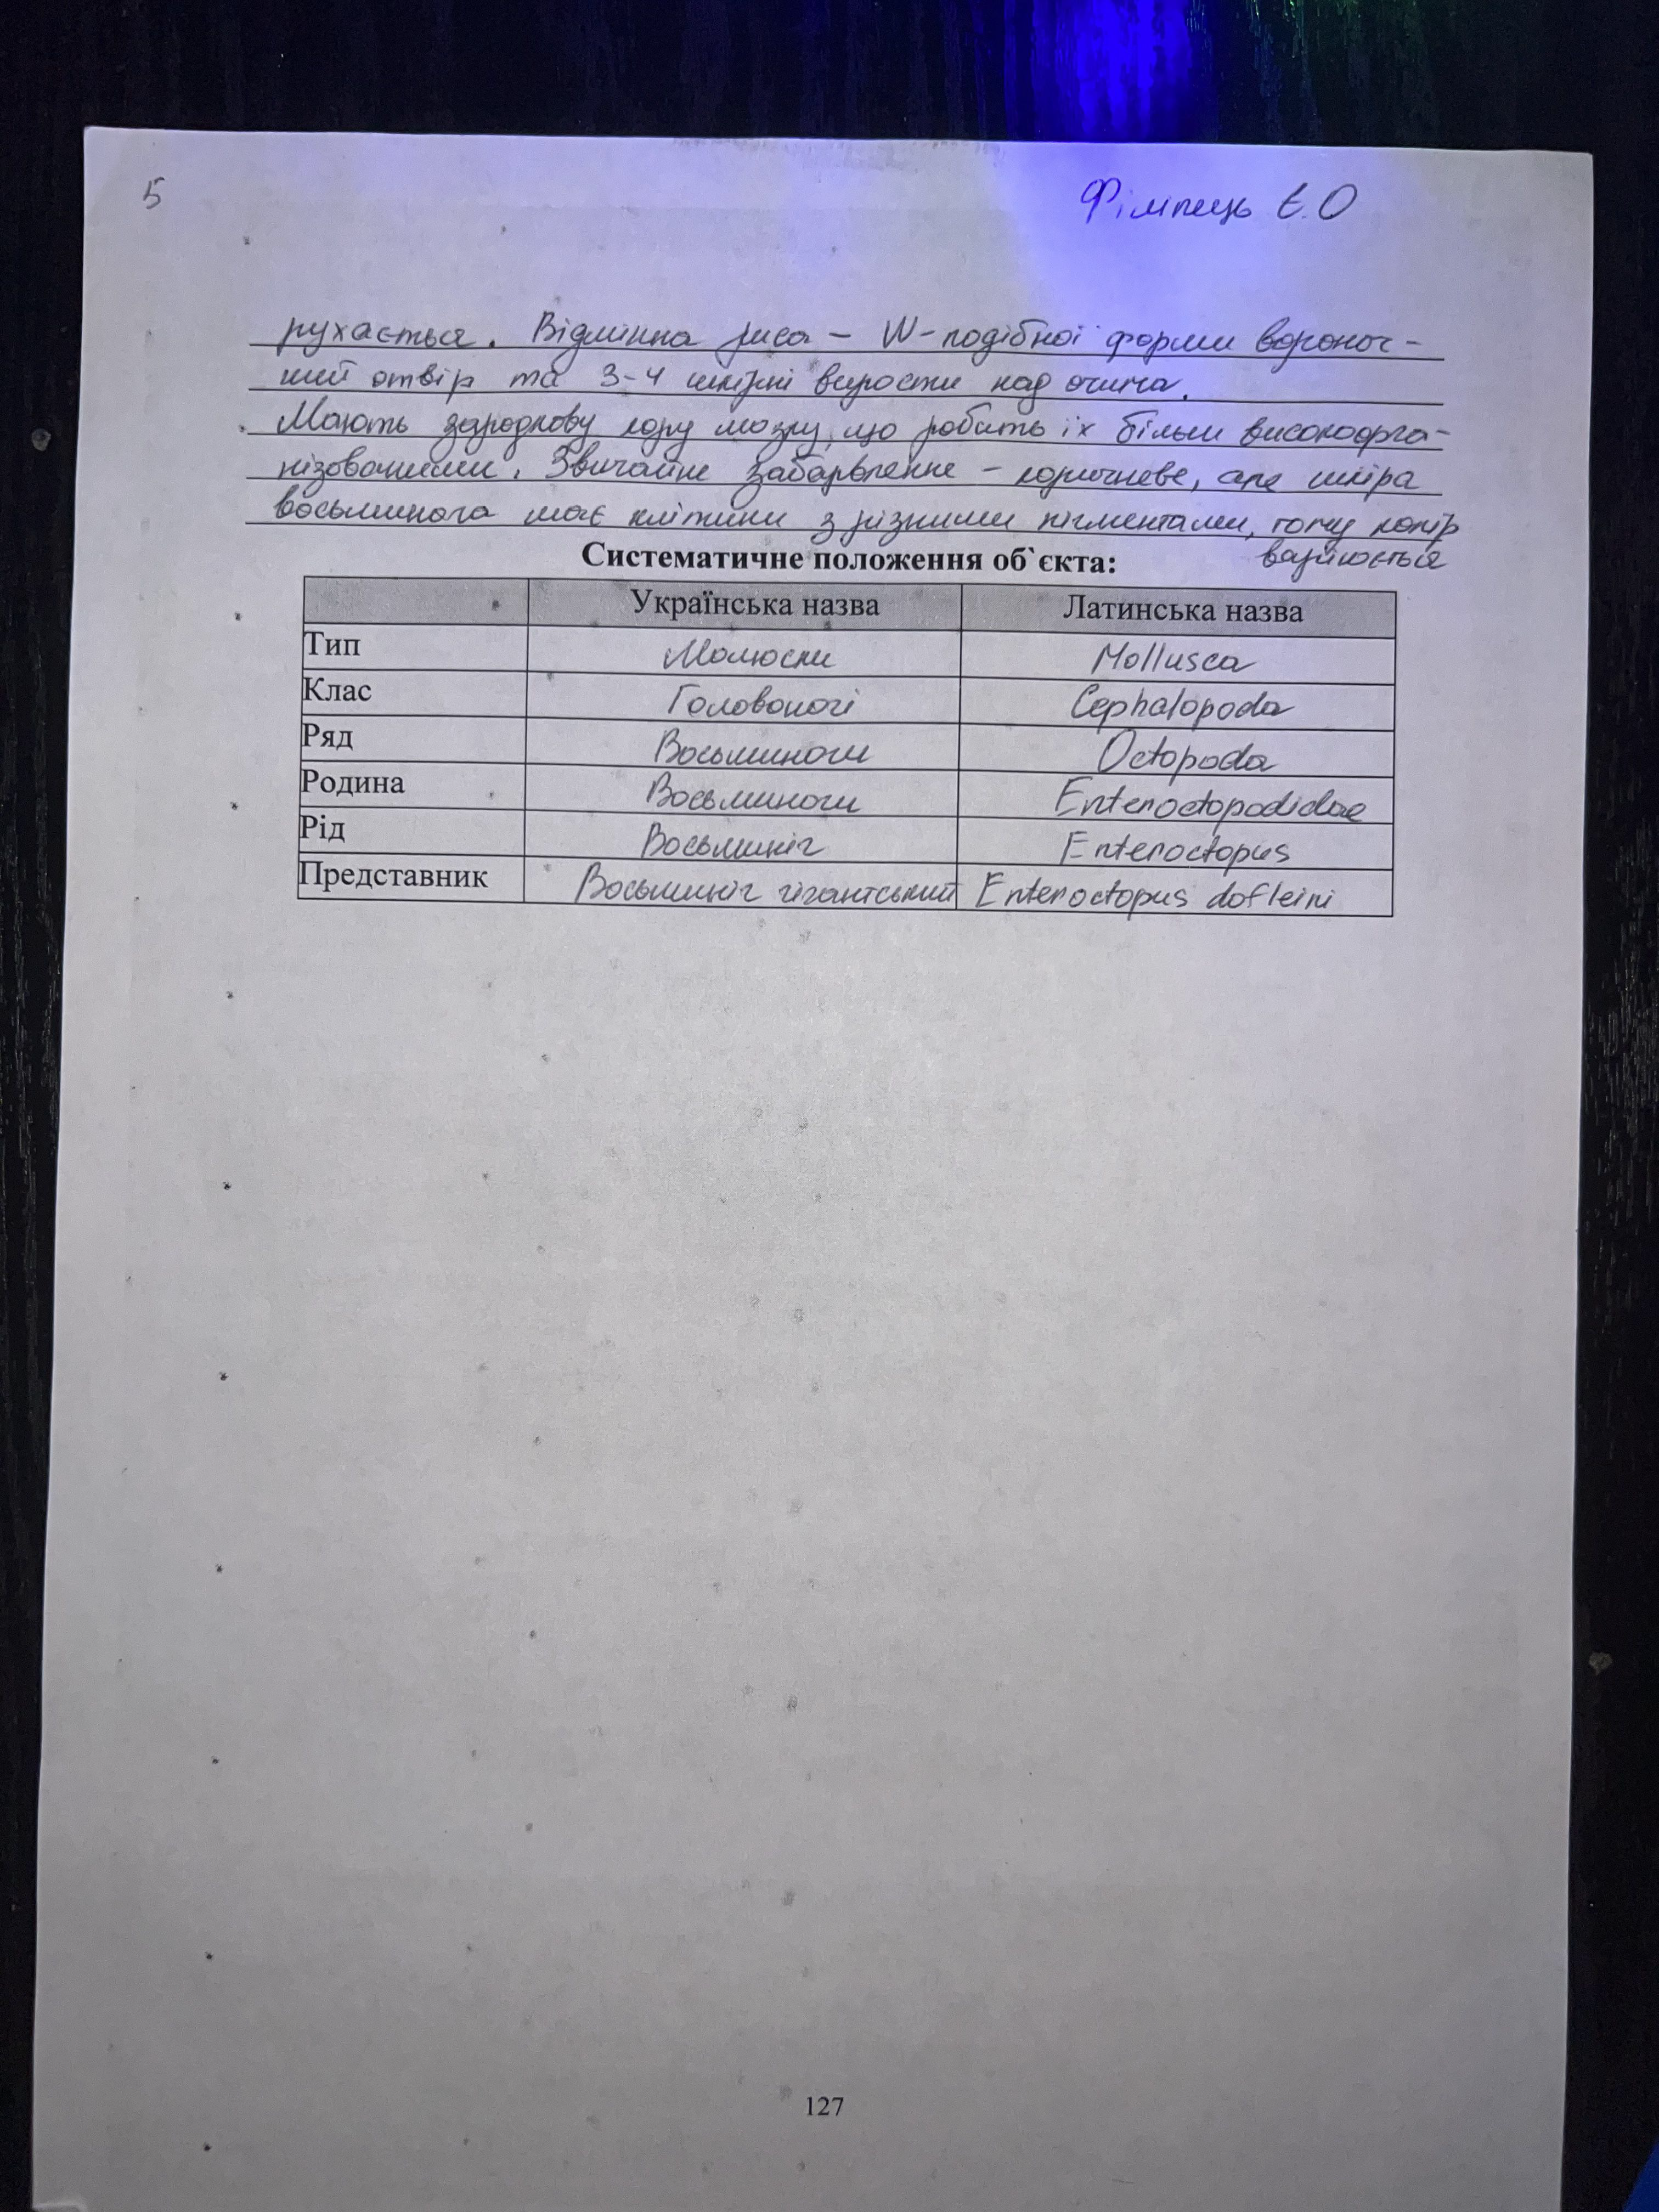 5
Філіпець Є.О
рухається. Відмінна риса – W-подібної форми вороноч-
ний отвір та 3-4 шкірні вирости над очима.
Мають зародкову кору мозку, що робить їх більш високоорга-
нізованими. Звичайне забарвлення – коричневе, але шкіра
восьминога має клітини з різними пігментами, тому колір
варіюється
Систематичне положення об`єкта:
Українська назва Латинська назва
Тип Молюски Mollusca
Клас Головоногі Cephalopoda
Ряд Восьминоги Octopoda
Родина Восьминоги Enteroctopodidae
Рід Восьминіг Enteroctopus
Представник Восьминіг гігантський Enteroctopus dofleini
127